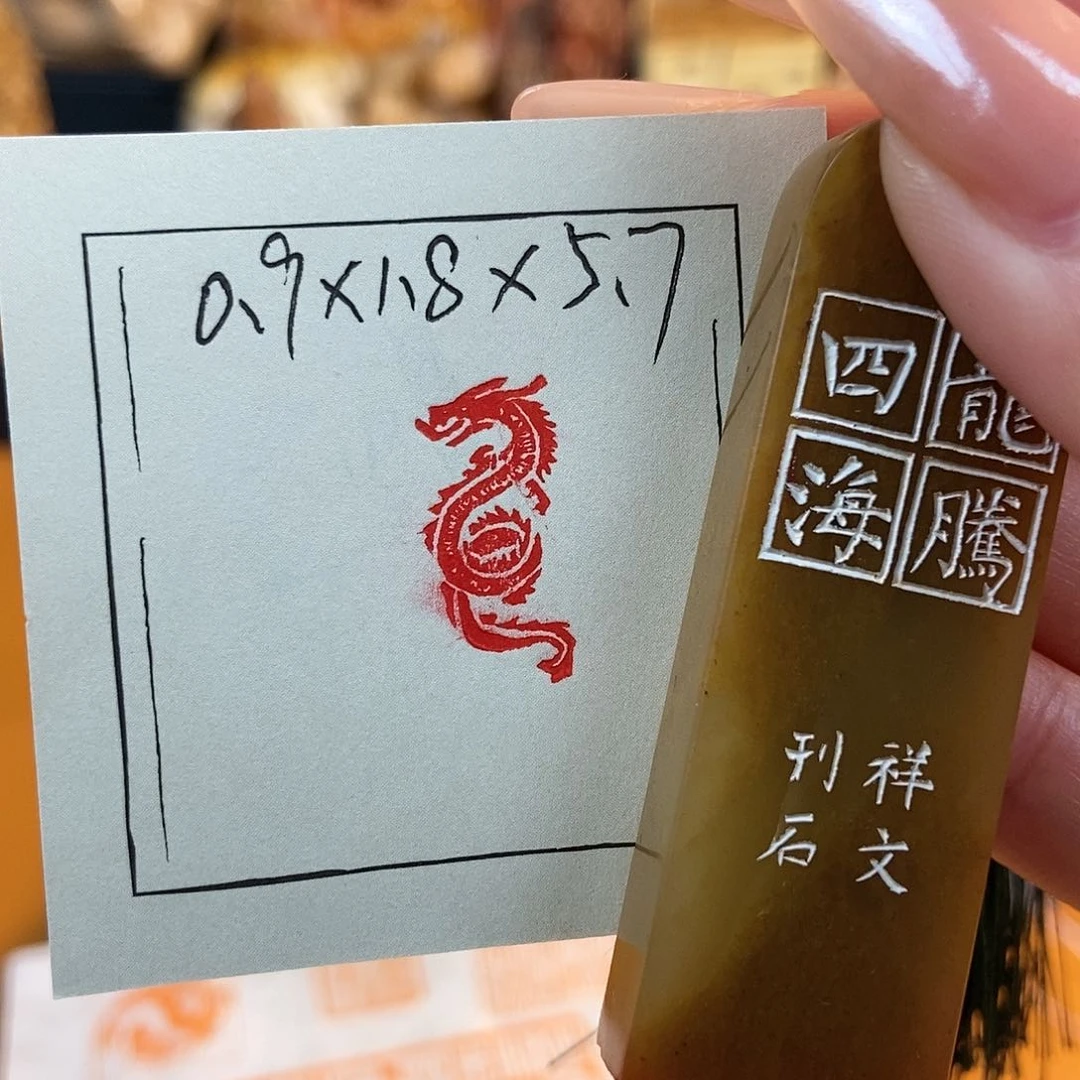 0.9×1.8×5.7
龍騰
四海
祥文
刊石